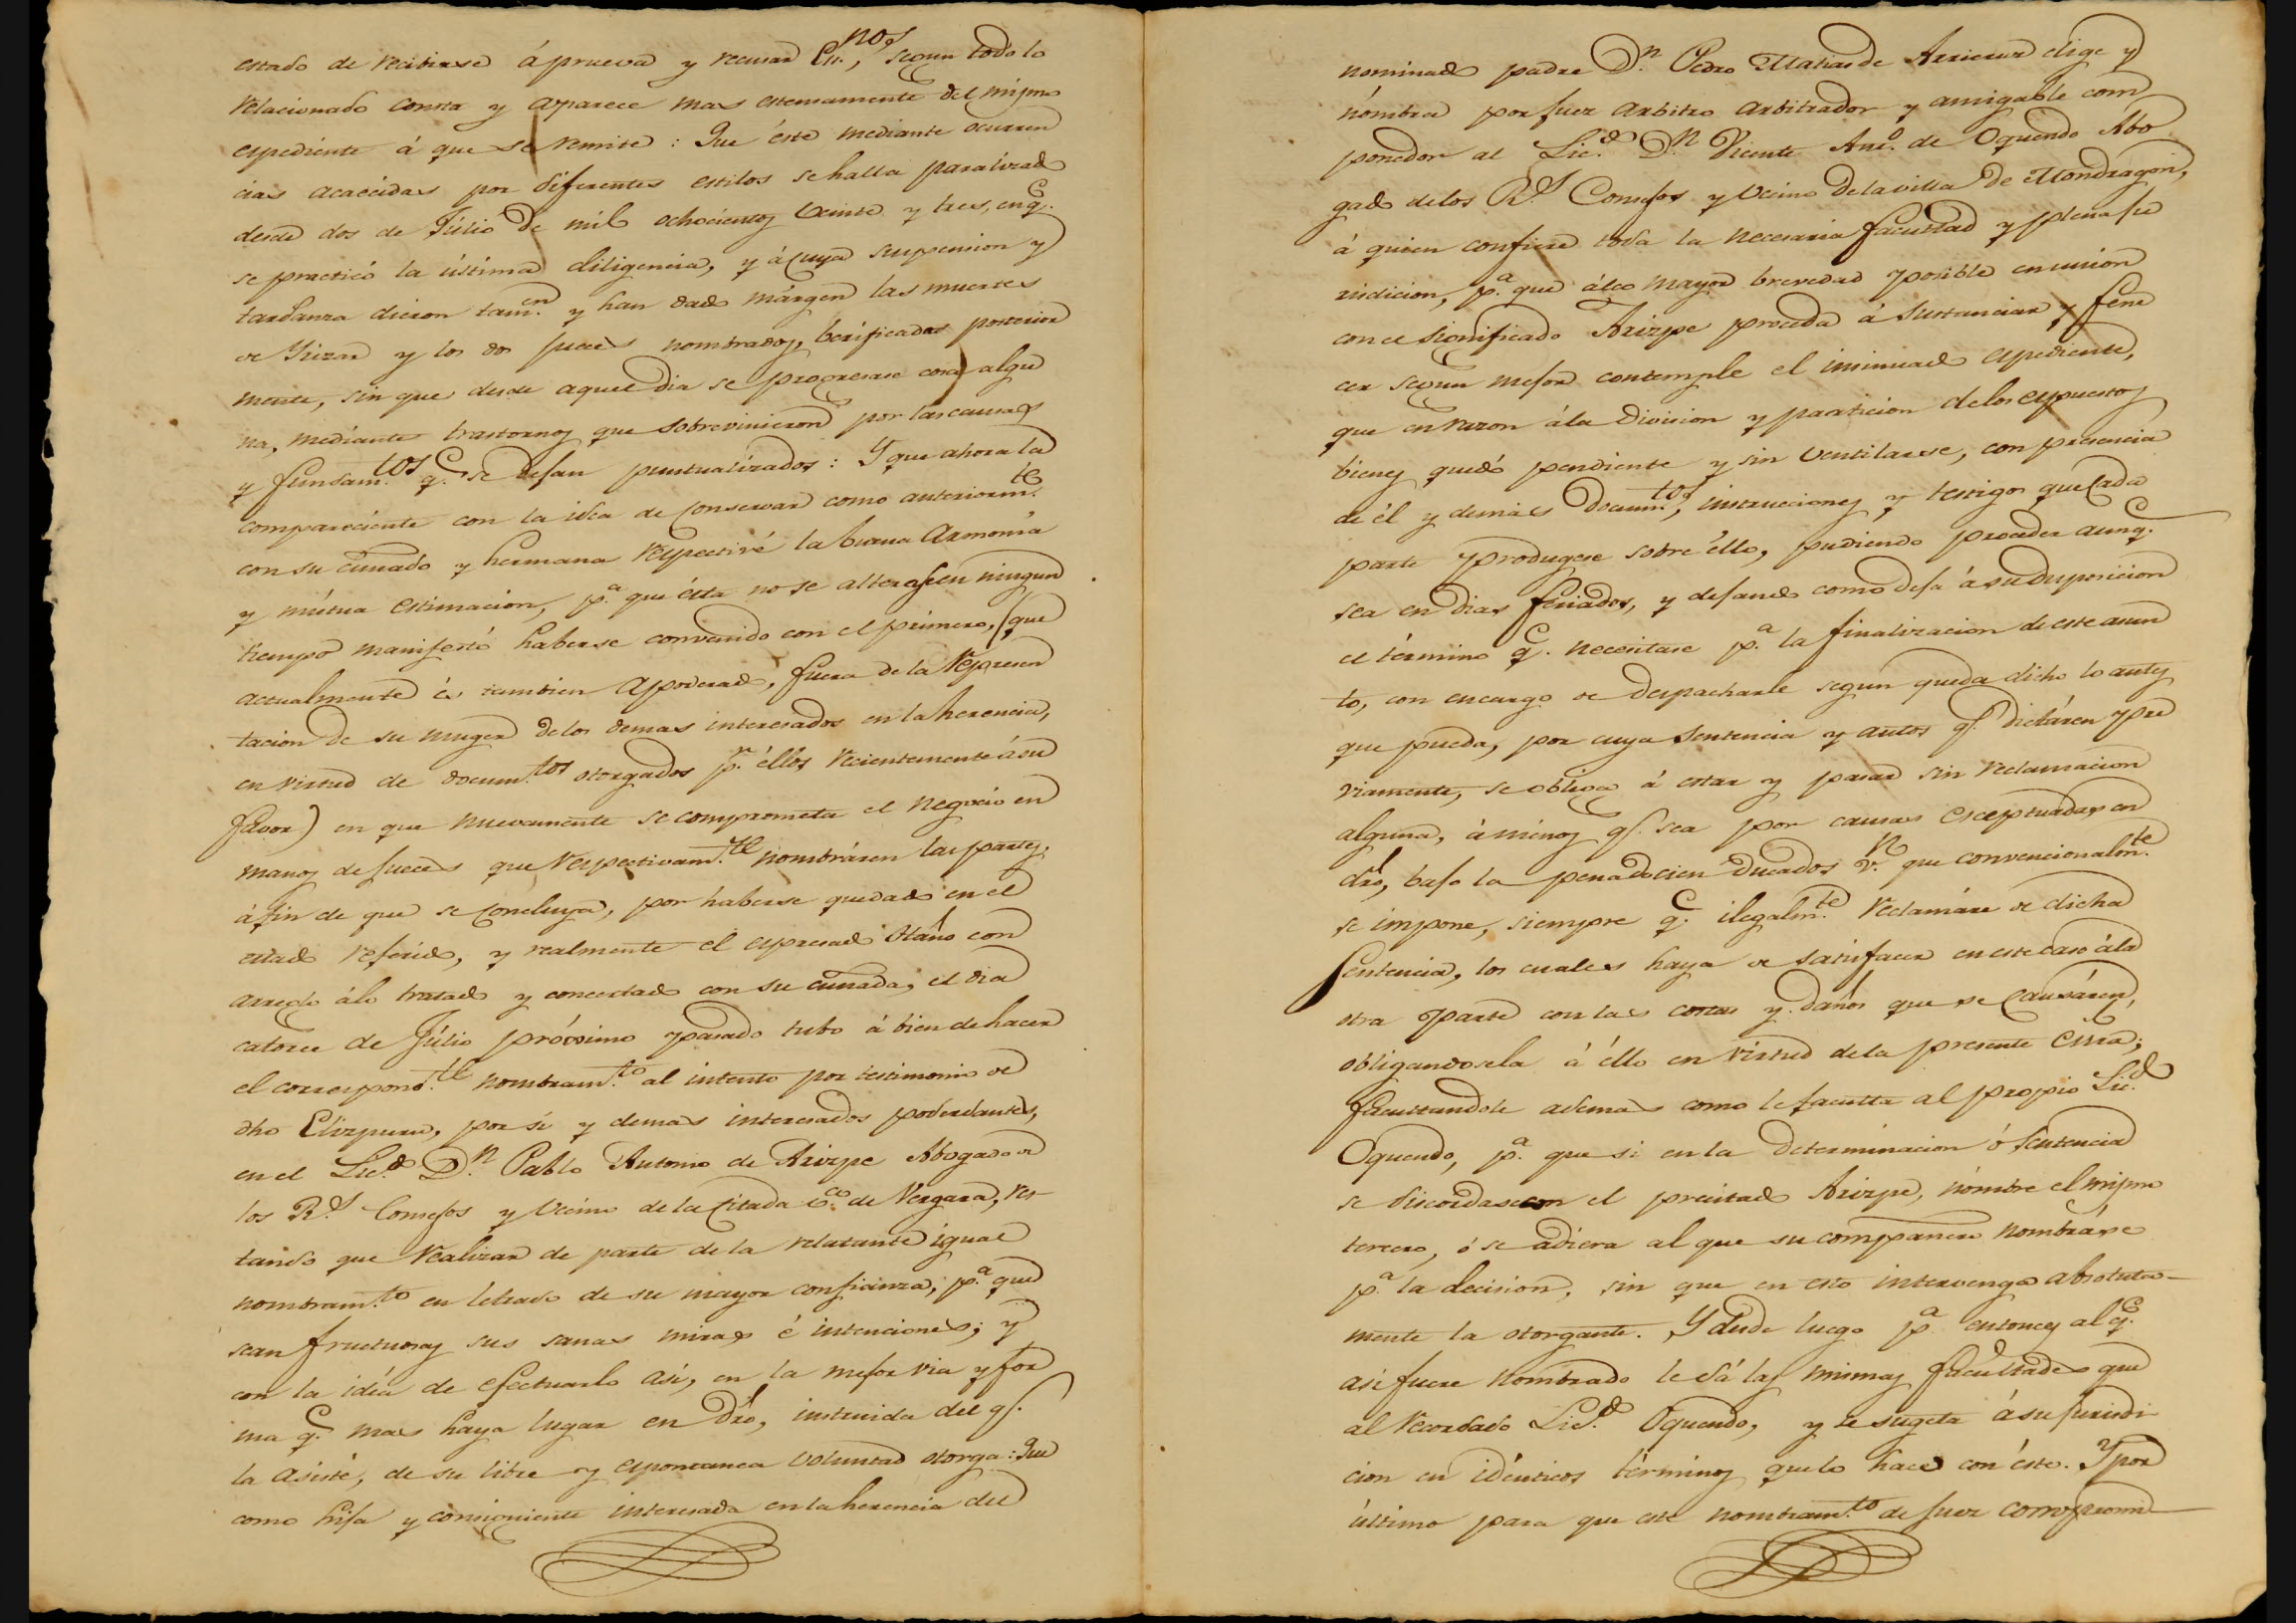 estado de recibirse á prueva y recusar Es.nos, segun todo lo
relacionado consta y aparece mas estensamente del mismo
espediente á que se remite : Que éste mediante ocurren
cias acaecidas por diferentes estilos se halla paralizado
desde dos de Júlio de mil ochocientos veinte y tres, en q.e
se practicó la última diligencia, y á cuya suspension y
tardanza dieron tam.en y han dado márgen las muertes
de Yrizar y los dos jueces nombrados, berificadas posterior
mente, sin que desde aquel dia se progresase cosa algu
na, mediante trastornos que sobrevinieron por las causas
y fundam.tos q.e se dejan puntualizados : Y que ahora la
compareciente con la idea de conservar como anteriorm.te
con su cuñado y hermana respectivé la buena armonía
y mútua estimacion, p.a que ésta no se altere en ningun
tiempo manifestó haberse convenido con el primero, (que
actualmente és tambien apoderado, fuera de la represen
tacion de su muger de los demas interesados en la herencia,
en virtud de docum.tos otorgados p.r éllos recientemente á su
favor) en que nuevamente se comprometa el negocio en
manos de jueces que respectivam.te nombrásen las partes,
á fin de que se concluya, por haberse quedado en el
estado referido, y realmente el espresado Otaño con
arreglo á lo tratado y concertado con su cuñada, el dia
catorce de Júlio prócsimo pasado tubo á bien de hacer
el correspond.te nombram.to al intento por testimonio de
dho Elizpuru, por sí y demas interesados poderdantes,
en el Lic.do D.n Pablo Antonio de Arizpe Abogado de
los R.s Consejos y vecino de la citada v.a de Vergara, res-
tando que realizar de parte de la relatante igual
nombram.to en letrado de su mayor confianza, p.a que
sean fructuosas sus sanas miras é intenciones; y
con la idéa de efectuarlo asi, en la mejor via y for
ma q.e mas haya lugar en dro, instruida del q.e
la asiste, de su libre y espontanea voluntad otorga : Que
como hija y consiguiente interesada en la herencia del
nominado padre D.n Pedro Matias de Arrieruz elige y
nómbra por juez arbitro arbitrador y amigable com
ponedor al Lic.do D.n Vicente Ant.o de Oquendo Abo
gado de los R.s Consejos y vecino de la villa de Mondragon,
á quien confiere toda la necesaria facultad y plena ju
risdicion, p.a que á la mayor brevedad posible en union
con el significado Arizpe proceda á sustanciar y fene
cer segun mejor contemple el insinuado espediente,
que en razon á la division y particion de los espuestos
bienes quedó pendiente y sin ventilarse, con presencia
de él y demás docum.tos, instrucciones y testigos que cada
parte produgese sobre éllo, pudiendo proceder aunq.e
sea en dias feriados, y dejando como deja á su disposicion
el término q.e necesitare p.a la finalizacion de este asun
to, con encargo de despacharle segun queda dicho lo antes
que pueda, por cuya sentencia y autos q.e dictáren pre
viamente, se obliga á estar y pasar sin reclamacion
alguna, á ménos q.e sea por causas esceptuadas en
dro, bajo la pena de cien ducados v.n que convencionalm.te
se impone, siempre q.e ilegalm.te reclamáre de dicha
sentencia, los cuales haya de satisfacer en este caso á la
otra parte con las costas y daños que se causáren,
obligandosela á éllo en virtud de la presente Esra;
facultandole ademas como le faculta al propio Lic.do
Oquendo, p.a que si en la determinacion ó sentencia
se discordase con el precitado Arizpe, nómbre el mismo
tercero, ó se adiera al que su compañero nombráre
p.a la decision, sin que en esto intervenga absoluta-
mente la otorgante. Y desde luego p.a entonces al q.e
asi fuere nombrado le dá las mismas facultades que
al recordado Lic.do Oquendo, y se sugeta á su jurisdi
cion en idénticos términos que lo hace con éste. Y por
último para que este nombram.to de juez compromi